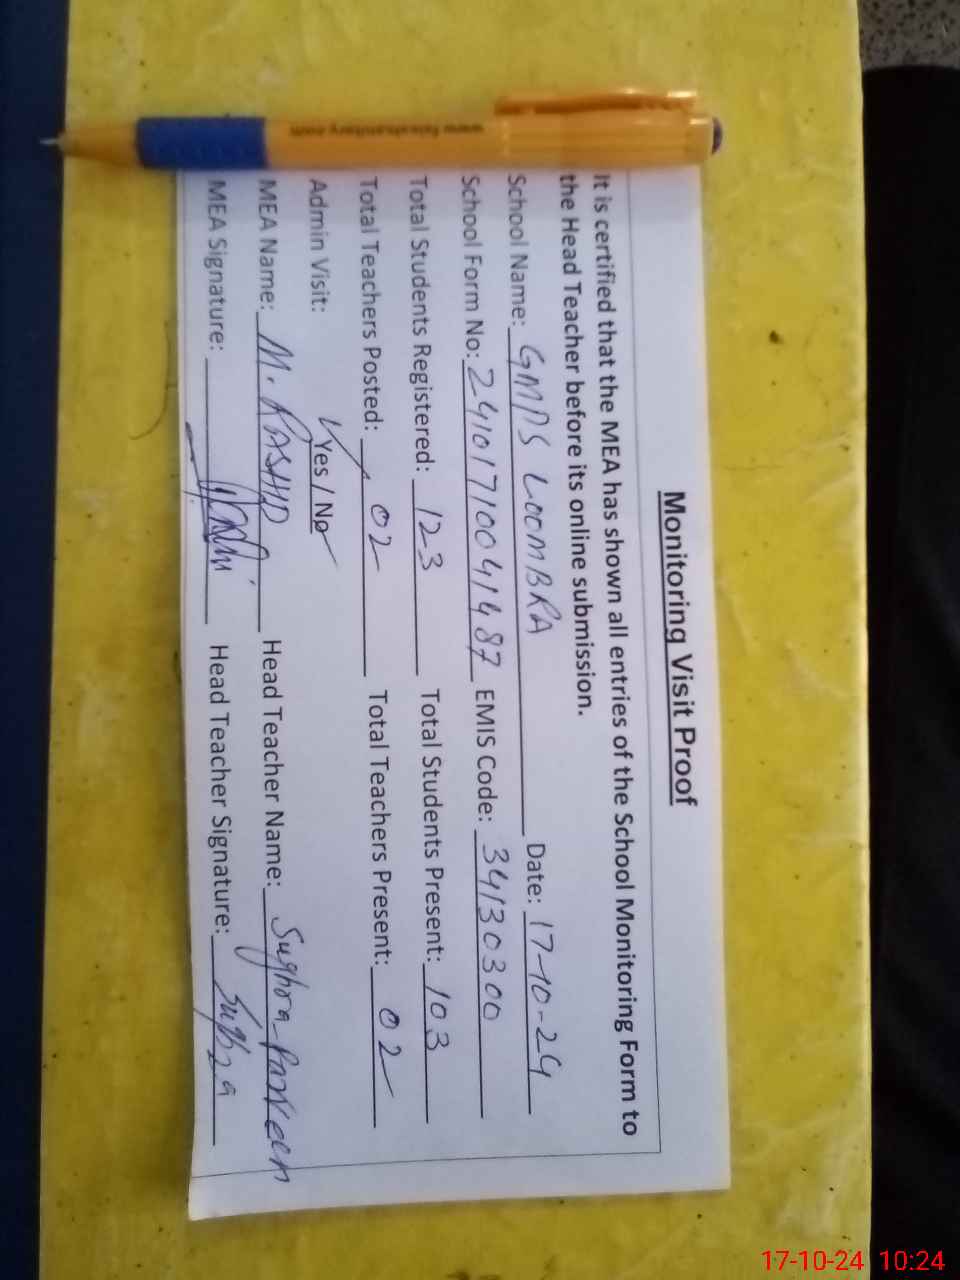 Monitoring Visit Proof
It is certified that the MEA has shown all entries of the School Monitoring Form to
the Head Teacher before its online submission.
School Name: GMPS LOOMBRA Date: 17-10-24
School Form No: 24101710041487 EMIS Code: 34130300
Total Students Registered: 123 Total Students Present: 103
Total Teachers Posted: 02 Total Teachers Present: 02
Admin Visit: Yes / No
MEA Name: M. RASHID Head Teacher Name: Sughra Parveen
MEA Signature: Head Teacher Signature: Sughra
17-10-24 10:24